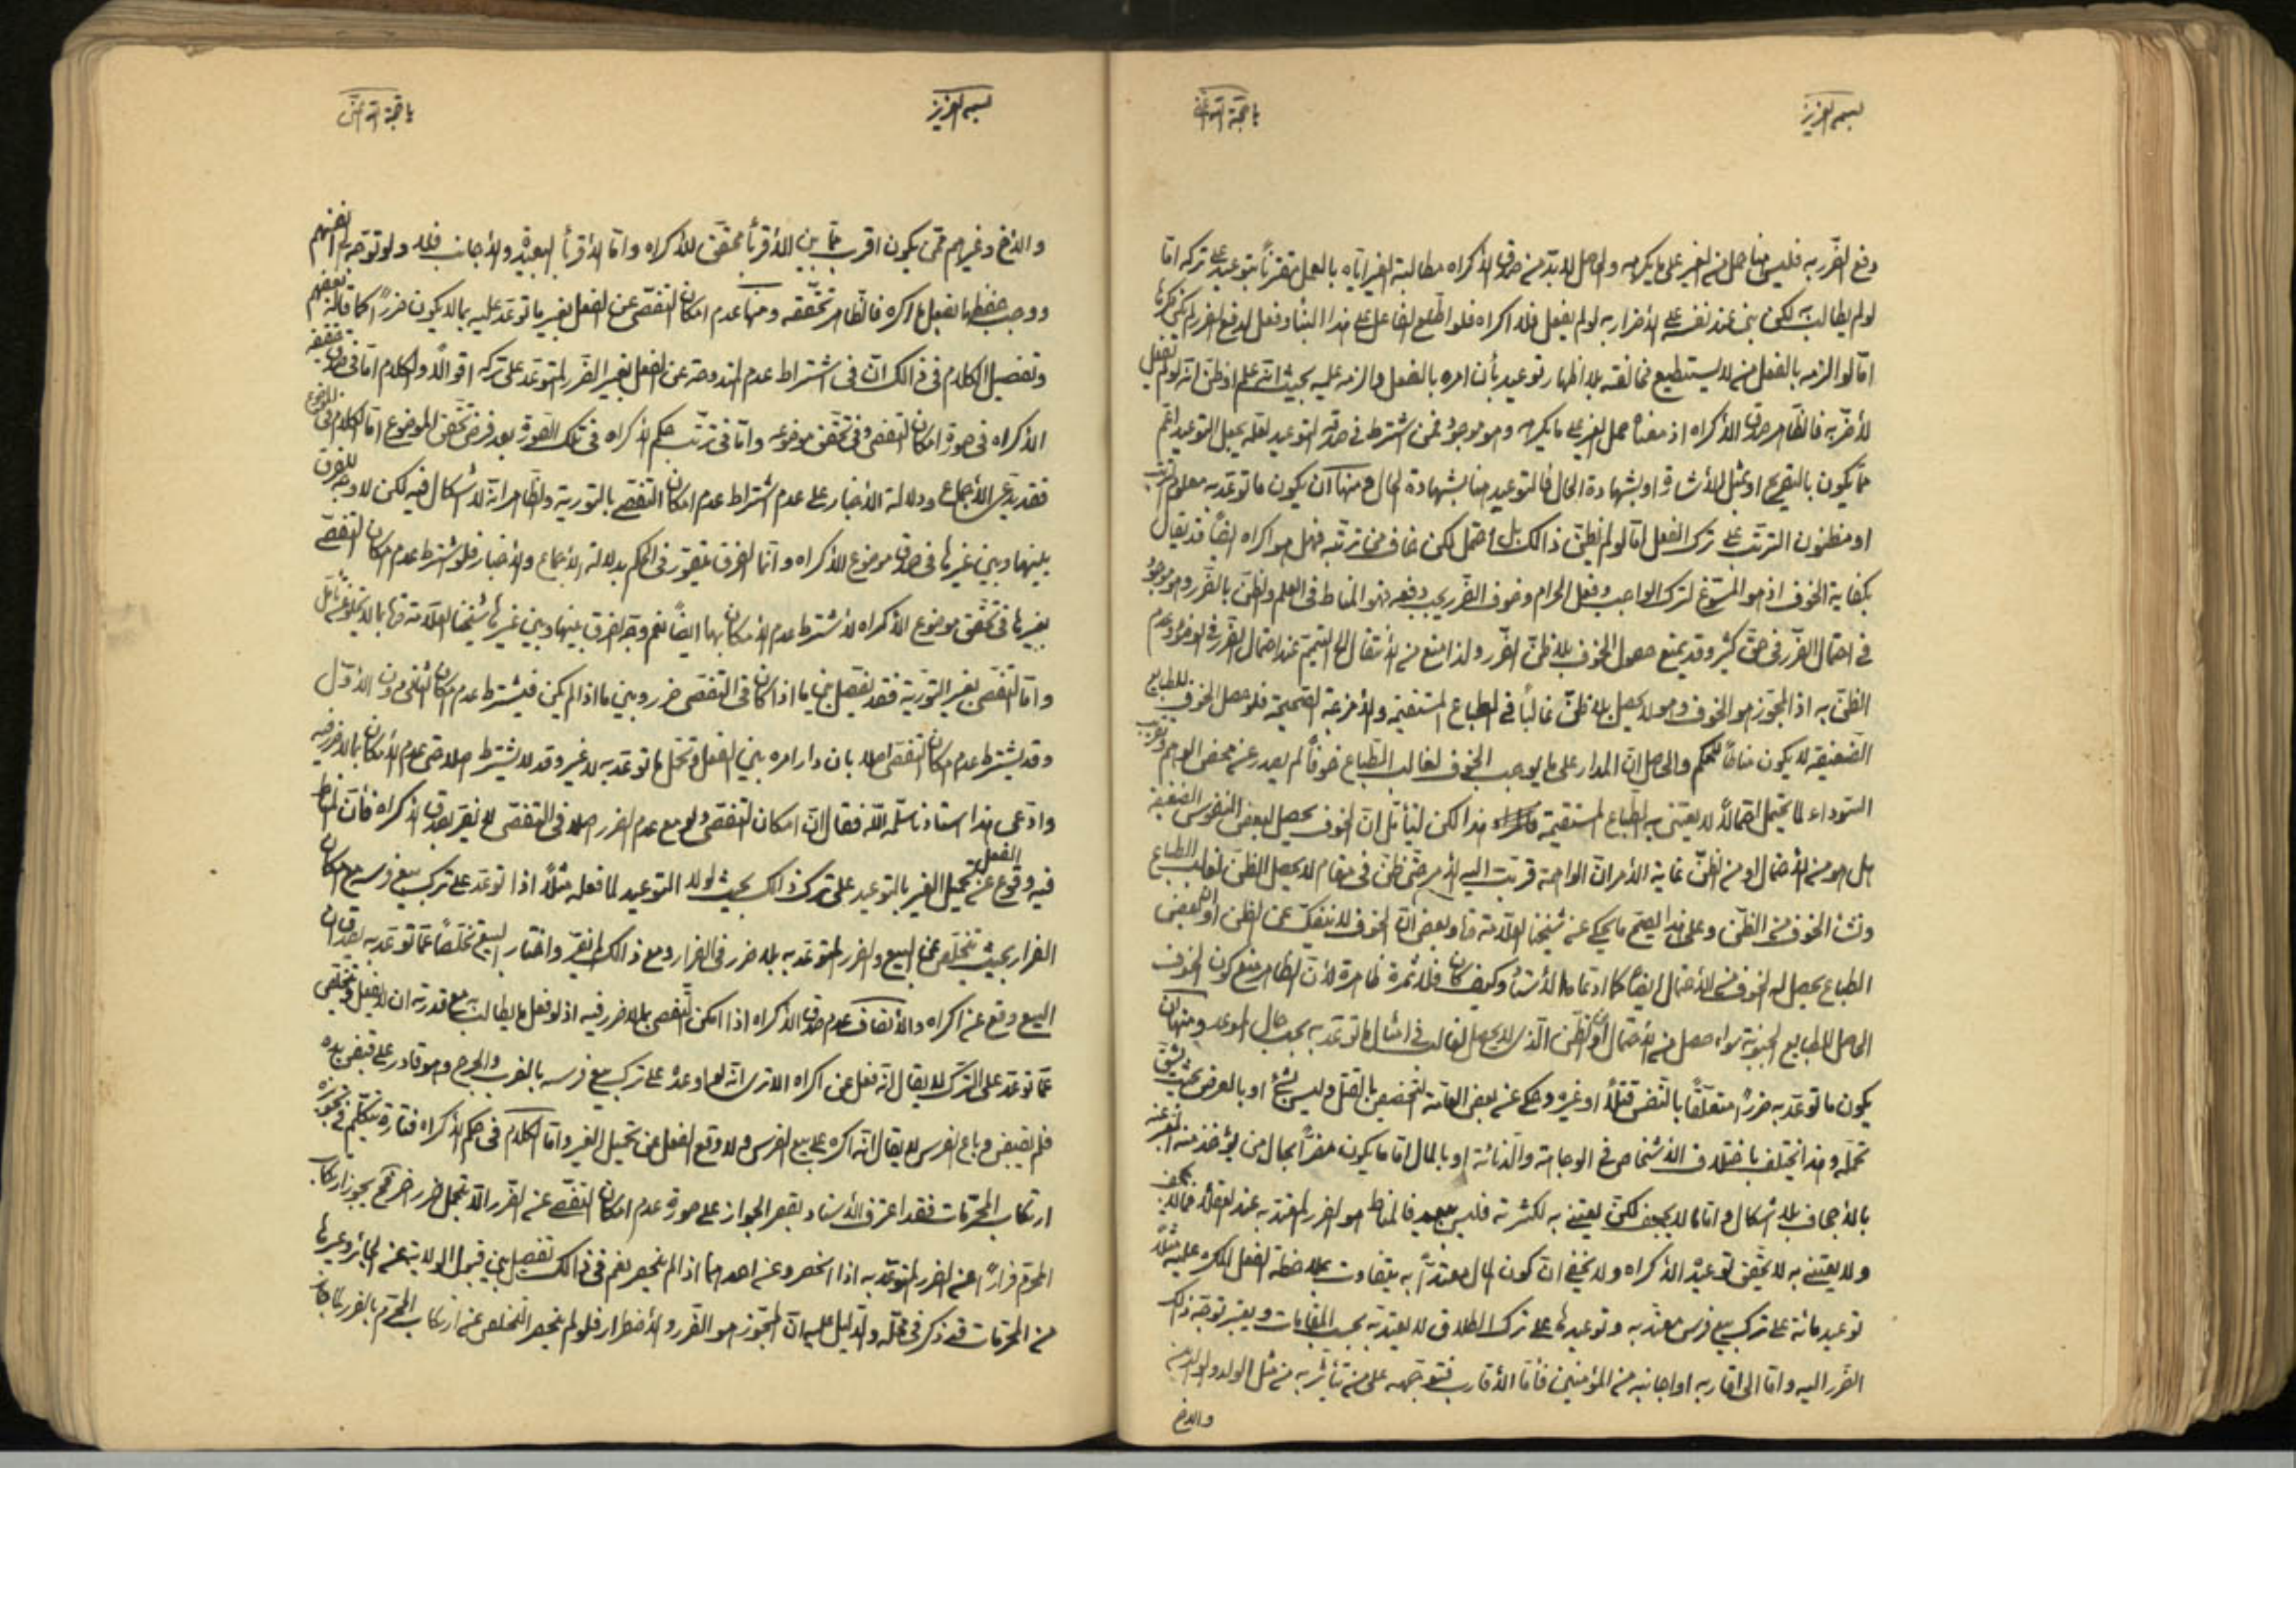 بسمه العزيز
يا حجة الله اغثنى
دفع الضرر به فليس هنا حمل من الغير على ما يكرهه والحاصل لا بد من صدق الاكراه مطالبة الغير اياه بالعمل مقترنا بتوعيد على تركه امّا
لو لم يطالبه لكن بنى عند نفسه على الاضرار به لو لم يفعل فلا اكراه فلو اطلع الفاعل على هذا البناء وفعل لدفع الضرر لم يكن مكرها
امّا لو الزمه بالفعل من لا يستطيع مخالفته بلا اظهار توعيد بأن امره بالفعل والزمه عليه بحيث انه علم او ظنّ انه لو لم يفعل
لأضرّ به فالظاهر صدق الاكراه اذ معناه حمل الغير على ما يكرهه وهو موجود فمن اشترط في صدقه التوعيد لعله يجعل التوعيد اعمّ
ممّا يكون بالتصريح او بمثل الأشارة او بشهادة الحال فالتوعيد هنا بشهادة الحال ومنها ان يكون ما توعّد به معلوم الترتب
او مظنون الترتب على ترك الفعل امّا لو لم يظنّ ذالك بل احتمل لكن خاف من ترتبه فهل هو اكراه ايضاً قد يقال
بكفاية الخوف اذ هو المسوّغ لترك الواجب وفعل الحرام وخوف الضرر يجب دفعه فهو المناط في العلم والظنّ بالضرر وهو موجود
في احتمال الضرر في حق كثير وقد يمنع حصول الخوف بلا ظنّ الضرر ولذا منع من الأنتقال الى التيمم عند احتمال الضرر في الوضوء وعدم
الظنّ به اذ المجوّز هو الخوف وهو لا يحصل بلا ظنّ غالباً في الطباع المستقيمة والأمزجة الصحيحة فلو حصل الخوف للطبايع
الضعيفة لا يكون مناطاً للحكم والحاصل انّ المدار على ما يوجب الخوف لغالب الطباع خوفاً لم يصدر عن محض الوهم وغلبة
السّوداء لما يحتمل احتمالاً لا يعتنى به الطباع المستقيمة هذا لكن ليتأمّل انّ الخوف يحصل لبعض النفوس الضعيفة
بل هو من الأحتمال او من الظنّ غاية الأمر انّ الواهمة قربت اليه الأمر حتى ظنّ في مقام لا يحصل الظنّ لغالب الطباع
ونشأ الخوف من الظنّ وعلى هذا يصح ما يحكى عن شيخنا العلامة وبعض انّ الخوف لا ينفك عن الظن او بعض
الطباع يحصل له الخوف من الأحتمال ايضاً كما ادعاه الأستاد وكيف كان فلا ثمرة ظاهرة لأنّ الظاهر منع كون الخوف
الحاصل للطبايع سواء حصل من الأحتمال او الظنّ الذى لا يحصل لغالب في امثال ما توعّد به بحسب حال الموعد ومنها ان
يكون ما توعّد به ضرراً متعلقاً بالنفس قتلاً او غيره وحكى عن بعض العامة التخصيص بالقتل وليس بشئ او بالعرض بحيث يشق
تحمله وهذا يختلف باختلاف الأشخاص في الوجاهة والدنائة او بالمال امّا ما يكون مضرّاً بحال من يؤخذ منه
بالأجحاف بلا اشكال وامّا ما لا يجحف لكن يعتنى به لكثرته فليس ببعيد فالمناط هو الضرر المعتد به عند العقلاء فما لا يجحف
ولا يعتنى به لا يتحقق بتوعيده الاكراه ولا يخفى انّ كون المال معتدّاً به يتفاوت بملاحظة الفعل المكره عليه مثلا
توعيد مائة على ترك بيع فرس معتد به وتوعيدها على ترك الطلاق لا يعتد به بحسب المقامات ويعتبر توجّه ذالك
الضرر اليه وامّا الى اقاربه او اجانبه من المؤمنين فأمّا الأقارب فتوجّهه على من يتأثر به من مثل الولد والوالد منه
والاخ
بسمه العزيز
يا حجة الله اغثنى
والاخ وغيرهم ممّن يكون اقرب ممّا بين الأقرباء محقق للأكراه وامّا الأقرباء البعيدة والأجانب فلا ولو توجّه الى انفسهم
ووجب حفظها بفعل ما اكره فالظاهر تحققه ومنها عدم امكان التفصّى عن الفعل بغير ما توعّد عليه بما لا يكون ضرراً كما قاله بعضهم
وتفصيل الكلام في ذالك انّ في اشتراط عدم المندوحة عن الفعل بغير الضرر المتوعّد على تركه اقوالاً والكلام امّا في صدق
الاكراه في صورة امكان التفصى وفى تحقق موضوعه وامّا في ترتب حكم الاكراه في تلك الصورة بعد فرض تحقق الموضوع امّا الكلام في الموضوع
فقد يدّعى الأجماع ودلالة الأخبار على عدم اشتراط عدم امكان التفصى بالتورية والظاهر انه لا اشكال فيه لكن لا وجه للفرق
بينها وبين غيرها في صدق موضوع الاكراه وانّما الفرق يتصور في الحكم بدلالة الأجماع والأخبار فلو اشترط عدم امكان التفصى
بغيرها في تحقق موضوع الاكراه لأشترط عدم الأمكان بها ايضاً نعم وجّه الفرق بينها وبين غيرها شيخنا العلامة بما لا يخلو عن تأمّل
وامّا التفصى بغير التورية فقد يفصل بين ما اذا كان في التفصى ضرر وبين ما اذا لم يكن فيشترط عدم امكان الثانى دون الأوّل
وقد يشترط عدم امكان التفصى اصلا بان دار امره بين الفعل وتحمّل ما توعّد به لا غير وقد لا يشترط اصلا حتى عدم الأمكان بما لا ضرر فيه
وادّعى هذا استادنا سلّمه الله فقال انّ امكان التفصى ولو مع عدم الضرر اصلا في التفصى لا يضرّ بصدق الاكراه فأنّ المناط
فيه وقوع الفعل عن تحميل الغير بالتوعيد على ترك ذالك بحيث لولا التوعيد لما فعله مثلاً اذا توعّد على ترك بيع فرسه مع امكان
الفرار بحيث يتخلص عن البيع والضرر المتوعّد به بلا ضرر في الفرار ومع ذالك لم يفرّ واختار البيع تخلّصاً عمّا توعّد به يصدق ان
البيع وقع عن اكراه والأنصاف عدم صدق الاكراه اذا امكن التفصى بما لا ضرر فيه اذ لو فعل ما يطالب به مع قدرته ان لا يفعل ويتخلص
عمّا توعّد على الترك لا يقال انه فعل عن اكراه الا ترى انه لو اوعده على ترك بيع فرسه بالضرب والجرح وهو قادر على قبض يده
فلم يقبض وباع الفرس لا يقال انه اكره على بيع الفرس ولا وقع الفعل عن تحميل الغير وامّا الكلام في حكم الاكراه فتارة يتكلّم في تجويزه
ارتكاب المحرّمات فقد اعترف الأستاد بقصر الجواز على صورة عدم امكان التفصى عن الضرر الّا بتحمل ضرر اخر فح يجوز ارتكاب
المحرّم فراراً عن الضرر المتوعّد به اذا انحصر وعن احدهما اذا لم ينحصر نعم في ذالك تفصيل بين قبول الولاية عن الجائر وغيرها
من المحرّمات قد ذكر في محلّه والدليل عليه انّ المجوّز هو الضرر والأضطرار فلو لم ينحصر التخلص عن ارتكاب المحرّم بالضرر